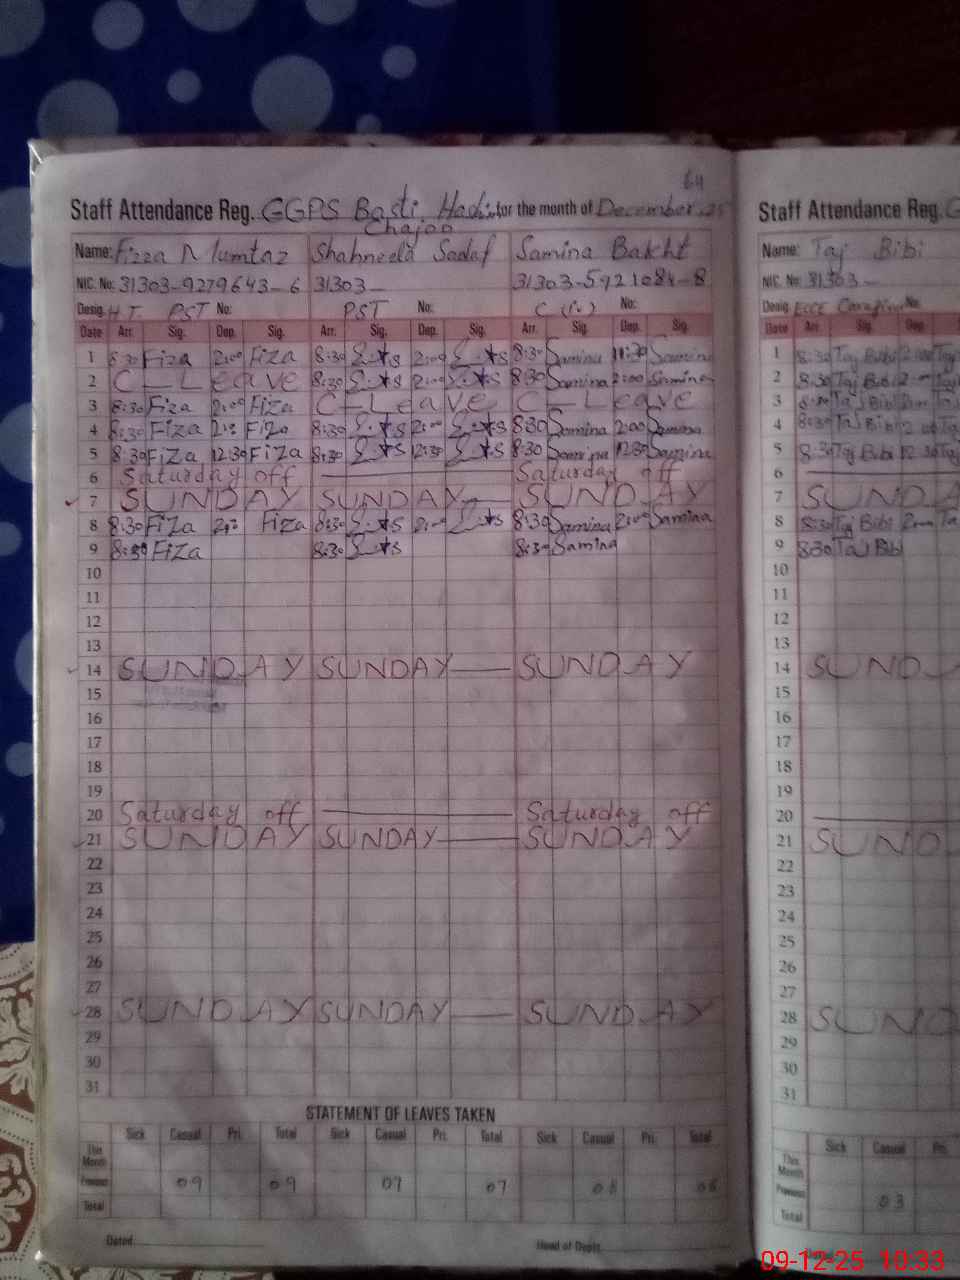 64
Staff Attendance Reg. GGPS Basti Hadi for the month of December.25
Chajoo
Name: Fizza Mumtaz Shahneela Sadaf Samina Bakht
NIC. No: 31303-9279643-6 31303- 31303-5921084-8
Desig. H.T. PST No: PST No: No:
Date Arr. Sig. Dep. Sig. Arr. Sig. Dep. Sig. Arr. Sig. Dep. Sig.
1 8:30 Fiza 2:00 Fiza 8:30 2:00 8:30 Samina Samina
2 C-Leave 8:30 2:00 8:30 Samina 2:00 Samina
3 8:30 Fiza 2:00 Fiza C-Leave C-Leave
4 8:30 Fiza 2:00 Fiza 8:30 2:00 8:30 Samina 2:00 Samina
5 8:30 Fiza 12:30 Fiza 8:30 12:30 8:30 Samina 12:30 Samina
6 Saturday off Saturday off
7 SUNDAY SUNDAY SUNDAY
8 8:30 Fiza 2:00 Fiza 8:30 2:00 8:30 Samina 2:00 Samina
9 8:30 Fiza 8:30 8:30 Samina
10
11
12
13
14 SUNDAY SUNDAY SUNDAY
15
16
17
18
19
20 Saturday off Saturday off
21 SUNDAY SUNDAY SUNDAY
22
23
24
25
26
27
28 SUNDAY SUNDAY SUNDAY
29
30
31
STATEMENT OF LEAVES TAKEN
Sick Casual Pri. Total Sick Casual Pri. Total Sick Casual Pri. Total
This Month
Previous 09 09 07 07 08 08
Total
Dated Head of Deptt.
Staff Attendance Reg. G
Name: Taj Bibi
NIC. No: 31303-
Desig. ECCE Caregiver No.
Date Arr. Sig. Dep.
1 8:30 Taj Bibi 2:00 Taj
2 8:30 Taj Bibi 2:00 Taj
3 8:30 Taj Bibi 2:00 Ta
4 8:30 Taj Bibi 2:00 Taj
5 8:30 Taj Bibi 12:30 Taj
6
7 SUNDA
8 8:30 Taj Bibi 2:00 Ta
9 8:30 Taj Bibi
10
11
12
13
14 SUND
15
16
17
18
19
20
21 SUND
22
23
24
25
26
27
28 SUND
29
30
31
Sick Casual Pri.
This Month
Previous 03
Total
09-12-25 10:33